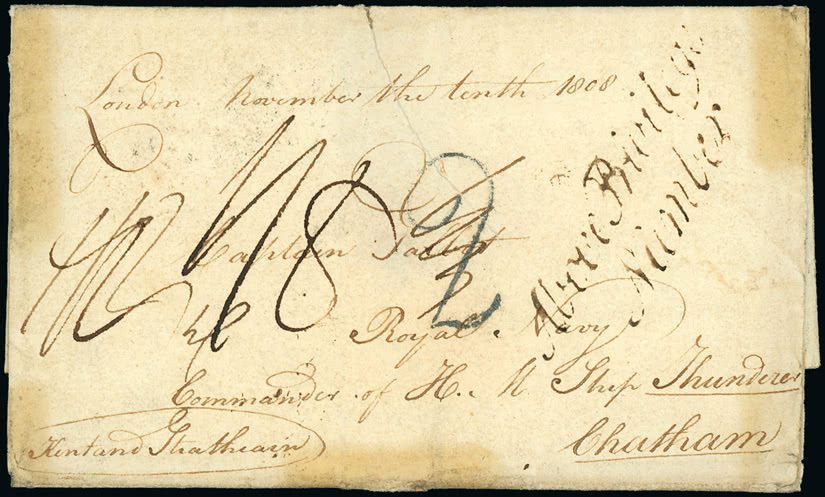 London November the tenth 1808
Above Privilege
Number
18
2
Captain Talbot
Royal Navy
Commander of H. M Ship Thunderer
Kent and Strathearn
Chatham